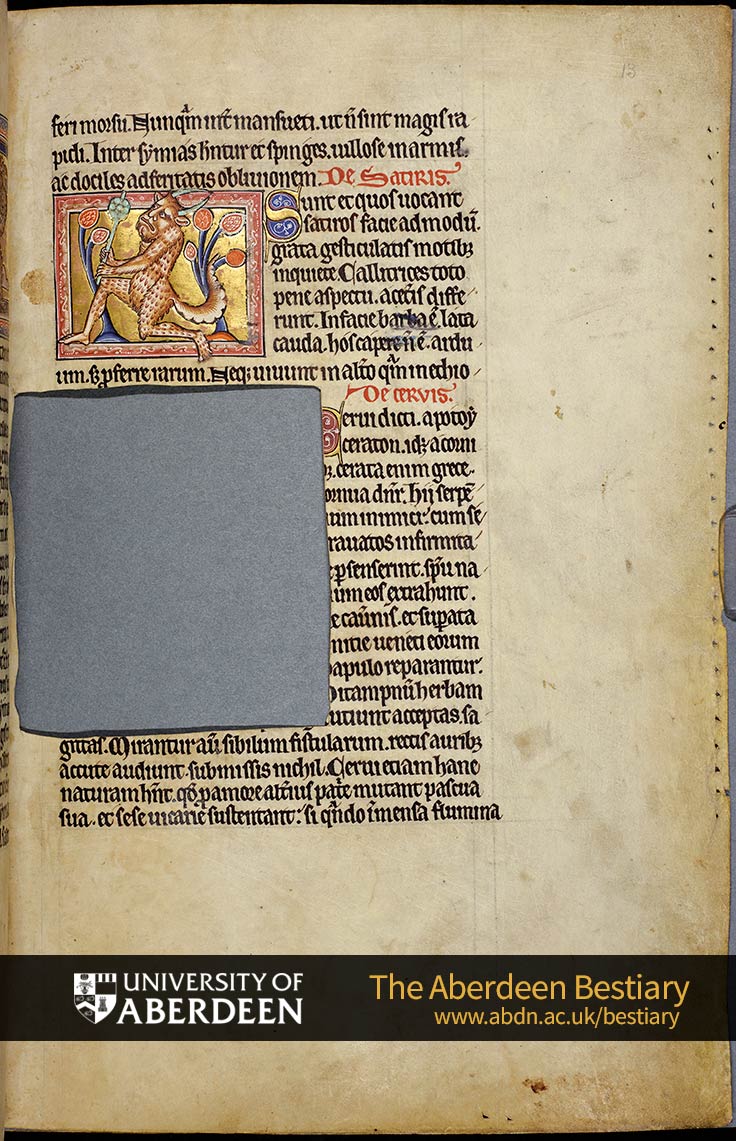 13
feri morsu. Nunqͣm uero mansueti. ut n̄ sint magis ra
pidi. Inter symias hn̄tur et spinges. uillose in armis.
ac dociles ad feritatis obliuionem. De Satiris.
Sunt et quos uocant
satiros facie admodū.
grata gesticulatis motibꝫ
inquiete. Callitrices toto
pene aspectu. a cet̄is diffe
runt. In facie barba ē. lata
cauda. hos capere n̄ ē. ardu
um. sꝫ ꝓferre rarum. Neqꝫ uiuunt in alto qͣm in ethio
De cervis.
Cerui dicti. apotoỹ
ceraton. idꝫ a corni
bꝫ. cerata enim grece.
cornua dn̄r. Hij serpē
tium inimici: cum se
grauatos infirmita
te ꝑsenserint. spū na
rium eos extrahunt.
de cau̾nis. et suꝑata
nitie ueneti eorum
papulo reparantur.
Ditampnū herbam
cutiunt acceptas. sa
gittas. Mirantur au̾ sibilum fistularum. rectis auribꝫ
accute audiunt. submissis nichil. Cerui etiam hanc
naturam hn̄t. qō ꝓ amore alt̾ius pat̾e mutant pascua
sua. et sese uicarie sustentant: si qn̄do īmensa flumina
UNIVERSITY OF
ABERDEEN
The Aberdeen Bestiary
www.abdn.ac.uk/bestiary